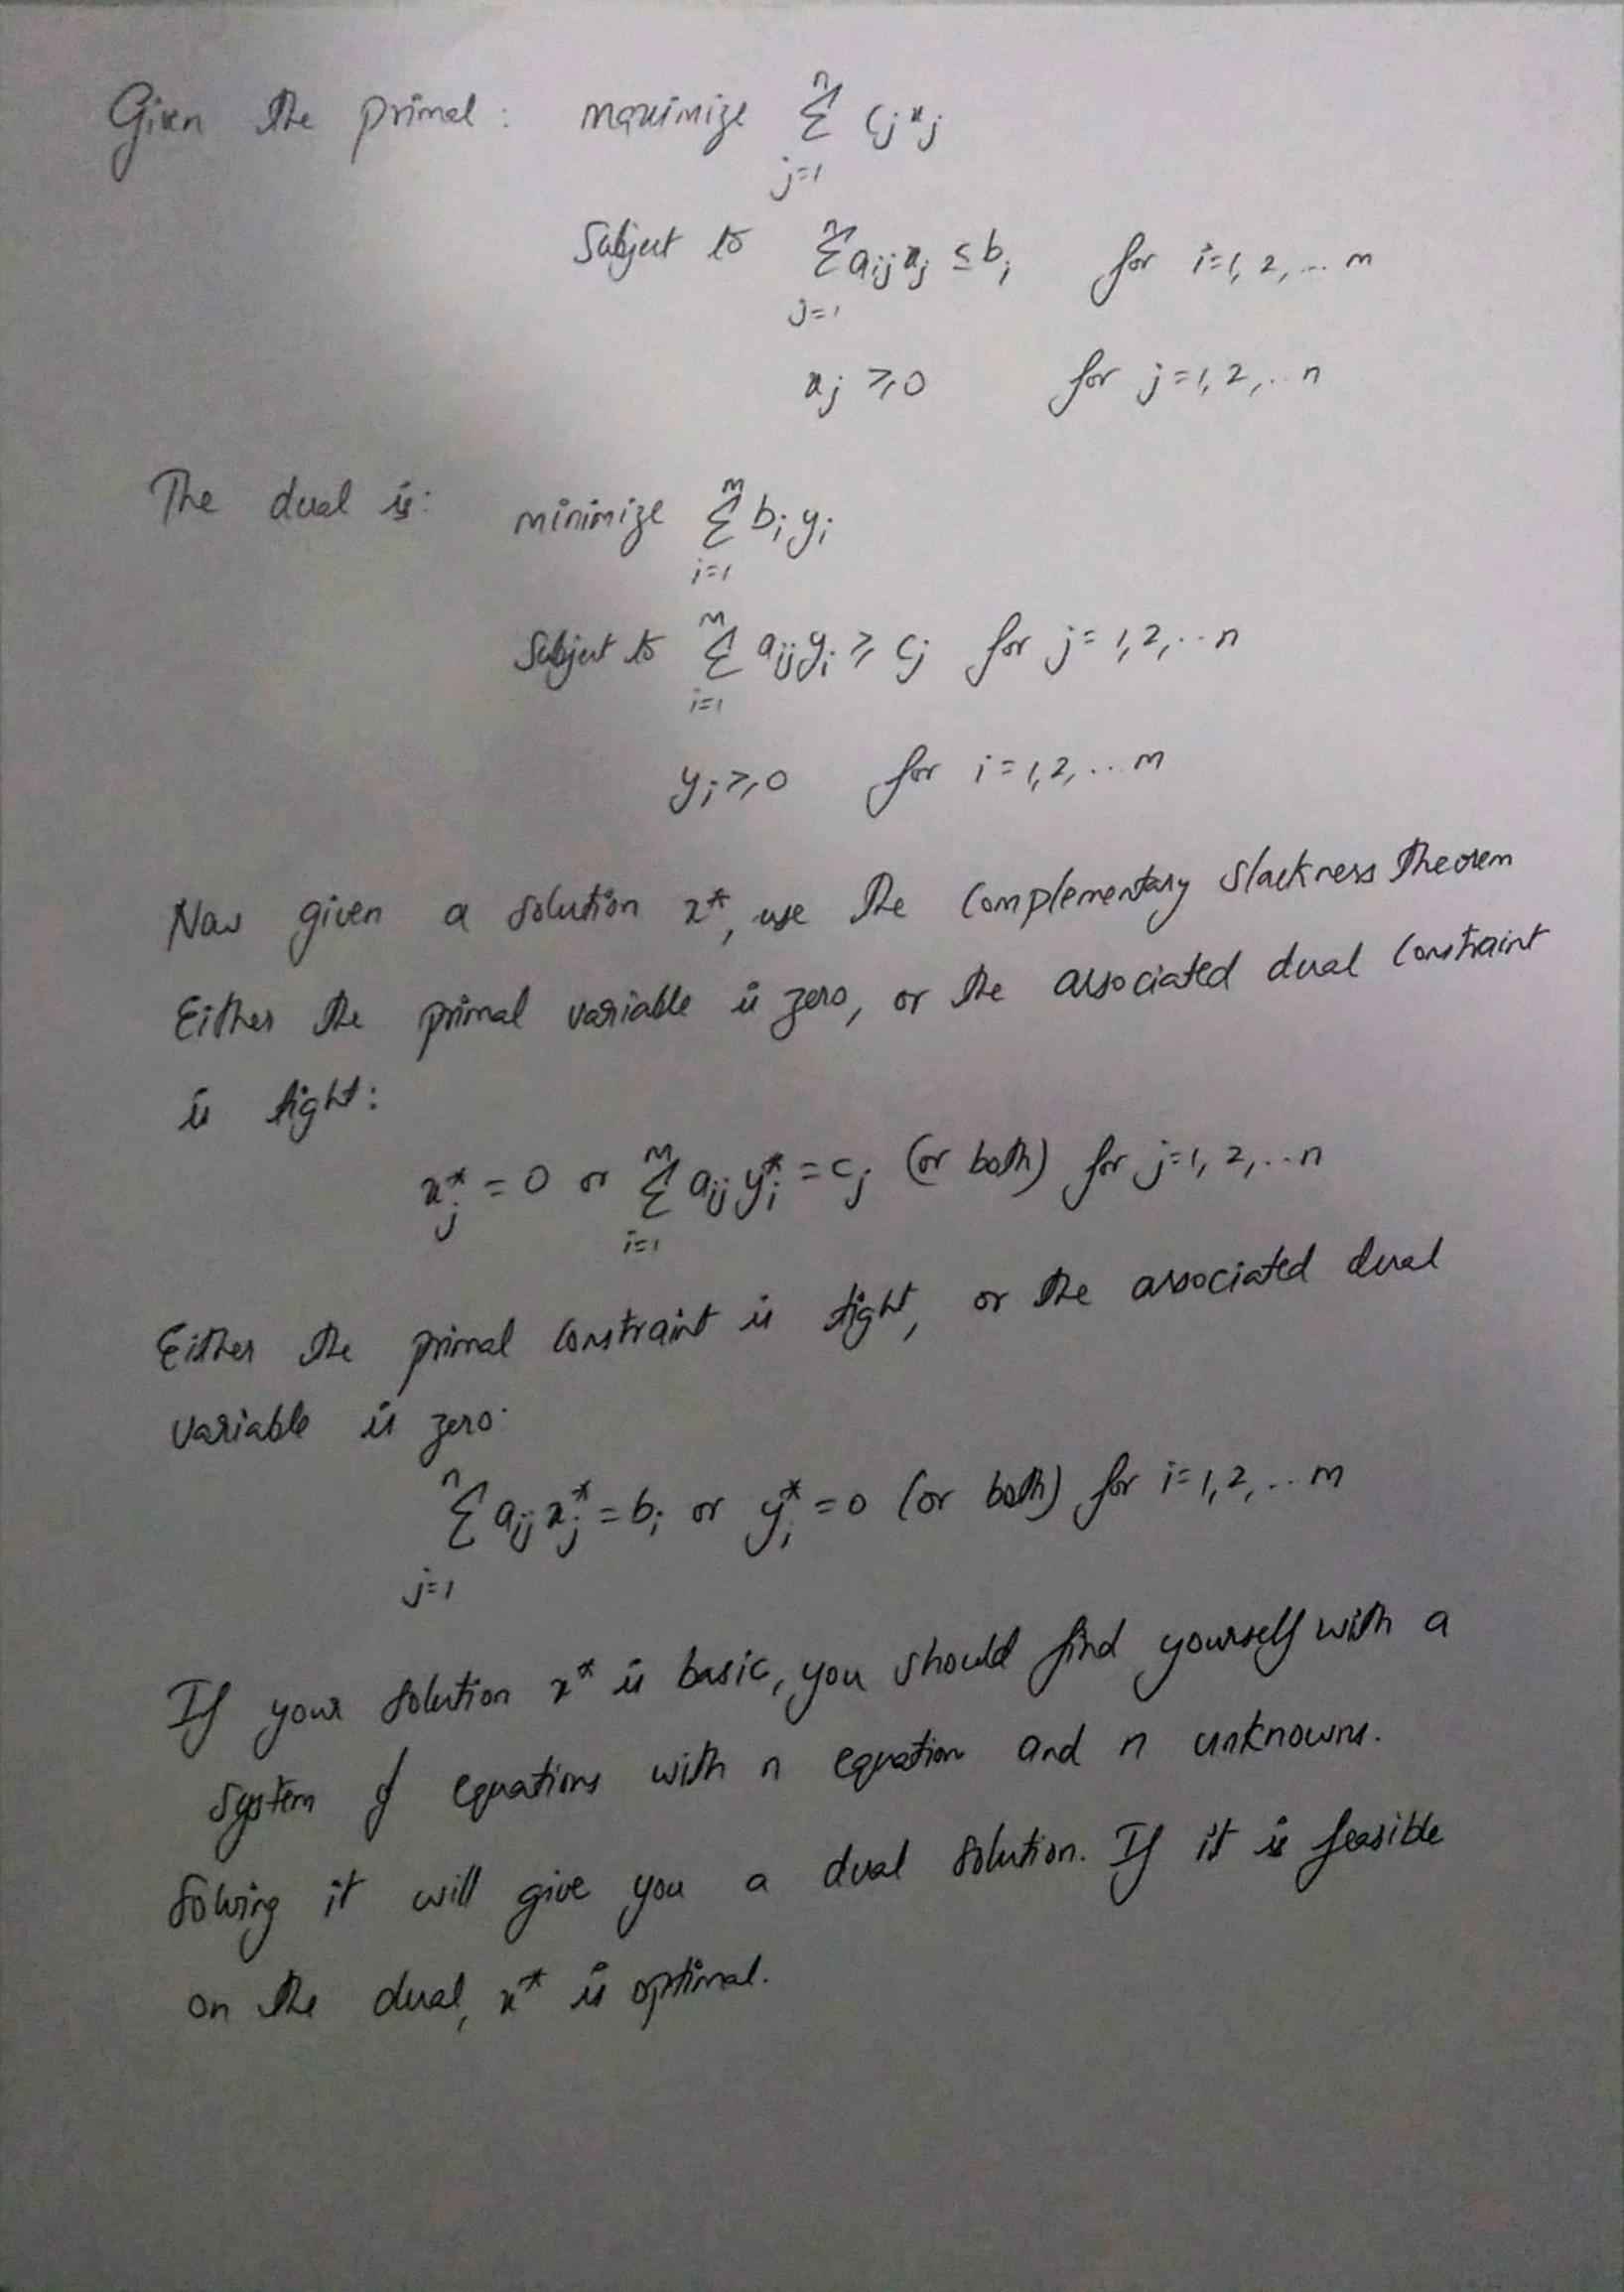 Given the primal: maximize n∑j=1 cjxj
Subject to n∑j=1 aijxj ≤ bi for i=1, 2, ... m
xj ≥ 0 for j=1, 2, .. n
The dual is: minimize m∑i=1 biyi
Subject to m∑i=1 aijyi ≥ cj for j= 1, 2, .. n
yi ≥ 0 for i = 1, 2, ... m
Now given a solution x*, use the Complementary Slackness Theorem
Either the primal variable is zero, or the associated dual constraint
is tight:
xj* = 0 or m∑i=1 aij yi* = cj (or both) for j=1, 2, .. n
Either the primal constraint is tight, or the associated dual
variable is zero.
n∑j=1 aij xj* = bi or yi* = 0 (or both) for i=1, 2, .. m
If your solution x* is basic, you should find yourself with a
system of equations with n equation and n unknowns.
Solving it will give you a dual solution. If it is feasible
on the dual, x* is optimal.